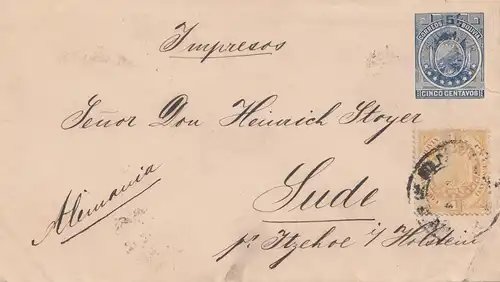 Impresos
CORREOS DE BOLIVIA
CINCO CENTAVOS
Señor Don Heinrich Stoyer
Sude
pr Itzehoe i/Holstein
Alemania